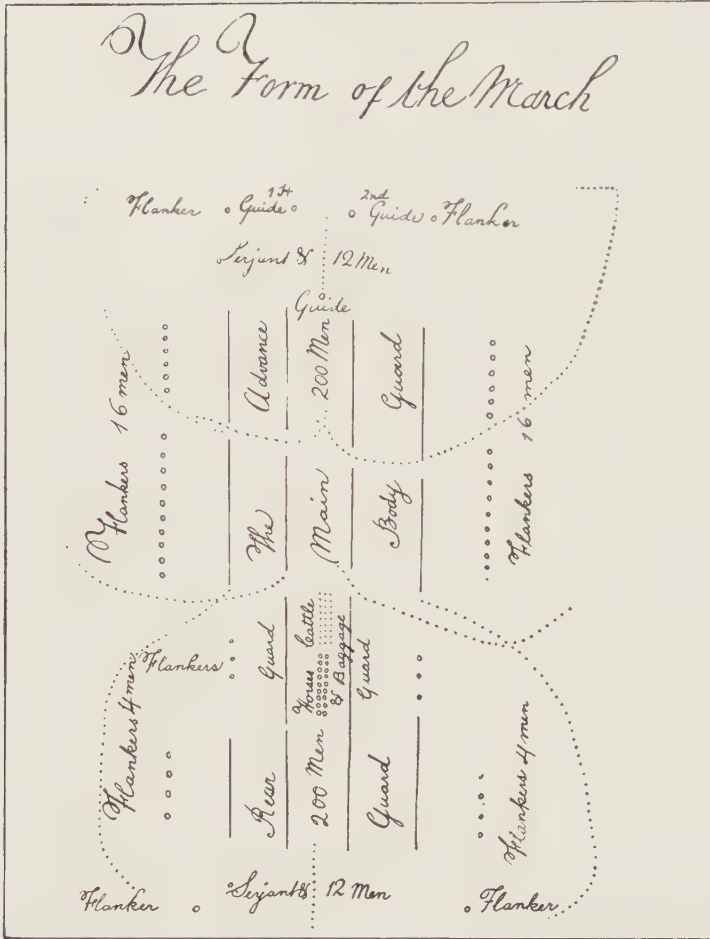 The Form of the March
Flanker 1st Guide 2nd Guide Flanker
Serjant & 12 Men
Guide
Flankers 16 men
Advance 200 Men Guard
Flankers 16 men
The Main Body
Flankers
Guard
Horses Cattle
& Baggage
Guard
Flankers 4 men
Rear 200 Men Guard
Flankers 4 men
Flanker Serjant & 12 Men Flanker